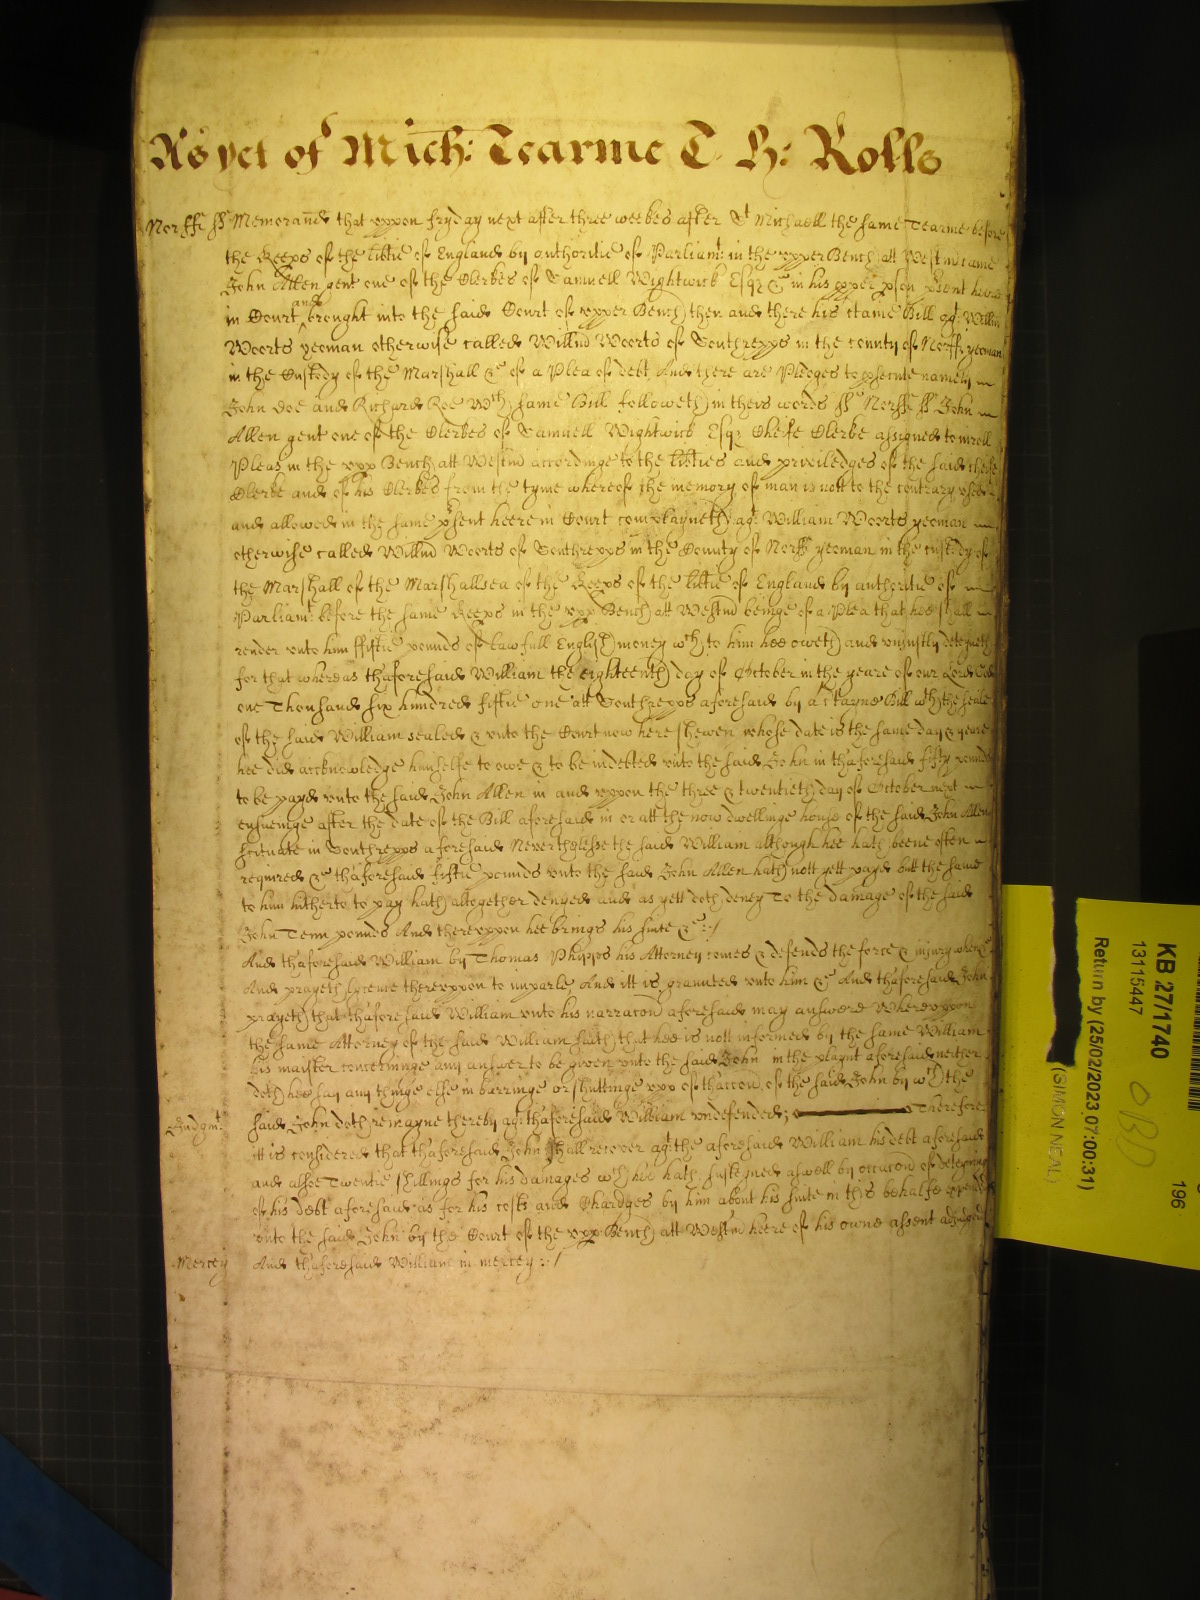 As yet of Mich: Tearme T. H: Rolls
Norff ss Memorand that uppon fryday next after three weekes after St Michaell the same Tearme before
the Keeps of the libtie of England by authoritie of Parliamt in the upper Bench att Westm came
John Allen gent one of the Clerkes of Samuell Wightwick Esqr &c in his pper pson psent heere
in Court and brought into the said Court of upper Bench then and there his ctaine Bill agt Willm
Woorts yeoman otherwise called Willm Woorts of Southrepps in the county of Norff yeoman
in the Custody of the Marshall &c of a Plea of debt And there are Pledges to psecute namely
John Doe and Richard Roe Wch same Bill followeth in theis words ss Norff ss John
Allen gent one of the Clerkes of Samuell Wightwick Esqr Cheife Clerke assigned to inroll
Pleas in the upp Bench att Westm accordinge to the libties and priviledges of the said cheife
Clerke and of his Clerkes from the tyme whereof the memory of man is nott to the contrary used
and allowed in the same psent heere in Court complayneth agt William Woorts yeoman
otherwise called Willm Woorts of Southrepps in the County of Norff yeoman in the custody of
the Marshall of the Marshallsea of the Keeps of the libtie of England by authoritie of
Parliamt before the same Keeps in the upp Bench att Westm beinge of a Plea that hee shall
render unto him ffiftie pounds of lawfull English money wch to him hee oweth and uniustly deteyneth
for that whereas thaforesaid William the eighteenth day of October in the yeare of our Lord God
one Thousand six hundred fiftie one att Southrepps aforesaid by a ctayne Bill wth the seale
of the said William sealed & unto the Court now here shewen whose date is the same day & yeare
hee did accknowledge himselfe to owe & to be indebted unto the said John in thaforesaid fifty pounds
to be payd unto the said John Allen in and uppon the three & twentieth day of October next
ensueinge after the date of the Bill aforesaid in or att the now dwellinge house of the said John Allen
scituate in Southrepps aforesaid Neverthelesse the said William although hee hath beene often
required &c thaforesaid fiftie pounds unto the said John Allen hath nott yett payd butt the same
to him hitherto to pay hath altogether denyed and as yett doth deney To the damage of the said
John Tenn pounds And thereuppon hee brings his suite &c :/
And thaforesaid William by Thomas Phipps his Attorney comes & defends the force & iniury when &c
And prayeth lycence thereuppon to imparle And itt is graunted unto him &c And thaforesaid John
prayeth that thaforesaid William unto his narracon aforesaid may answere Whereuppon
the same Attorney of the said William saith that hee is nott informed by the same William
his maister concerninge any answer to be given unto the said John in the playnt aforesaid neither
doth hee say any thinge else in barringe or shuttinge upp of thaccon of the said John by wch the
Judgmt said John doth remayne thereby agt thaforesaid William undefended; Therefore
itt is considered that thaforesaid John shall recover agt the aforesaid William his debt aforesaid
and alsoe Twentie shillings for his damages wch hee hath susteyned aswell by occacon of deteyning
of his debt aforesaid as for his costs and Chardges by him about his suite in this behalfe expended
unto the said John by the Court of the upp Bench att Westm heere of his owne assent adiudged
Mercey And thaforesaid William in mercey :/
KB 27/1740
13115447
Return by (25/02/2023 07:00:31)
(SIMON NEAL)
196